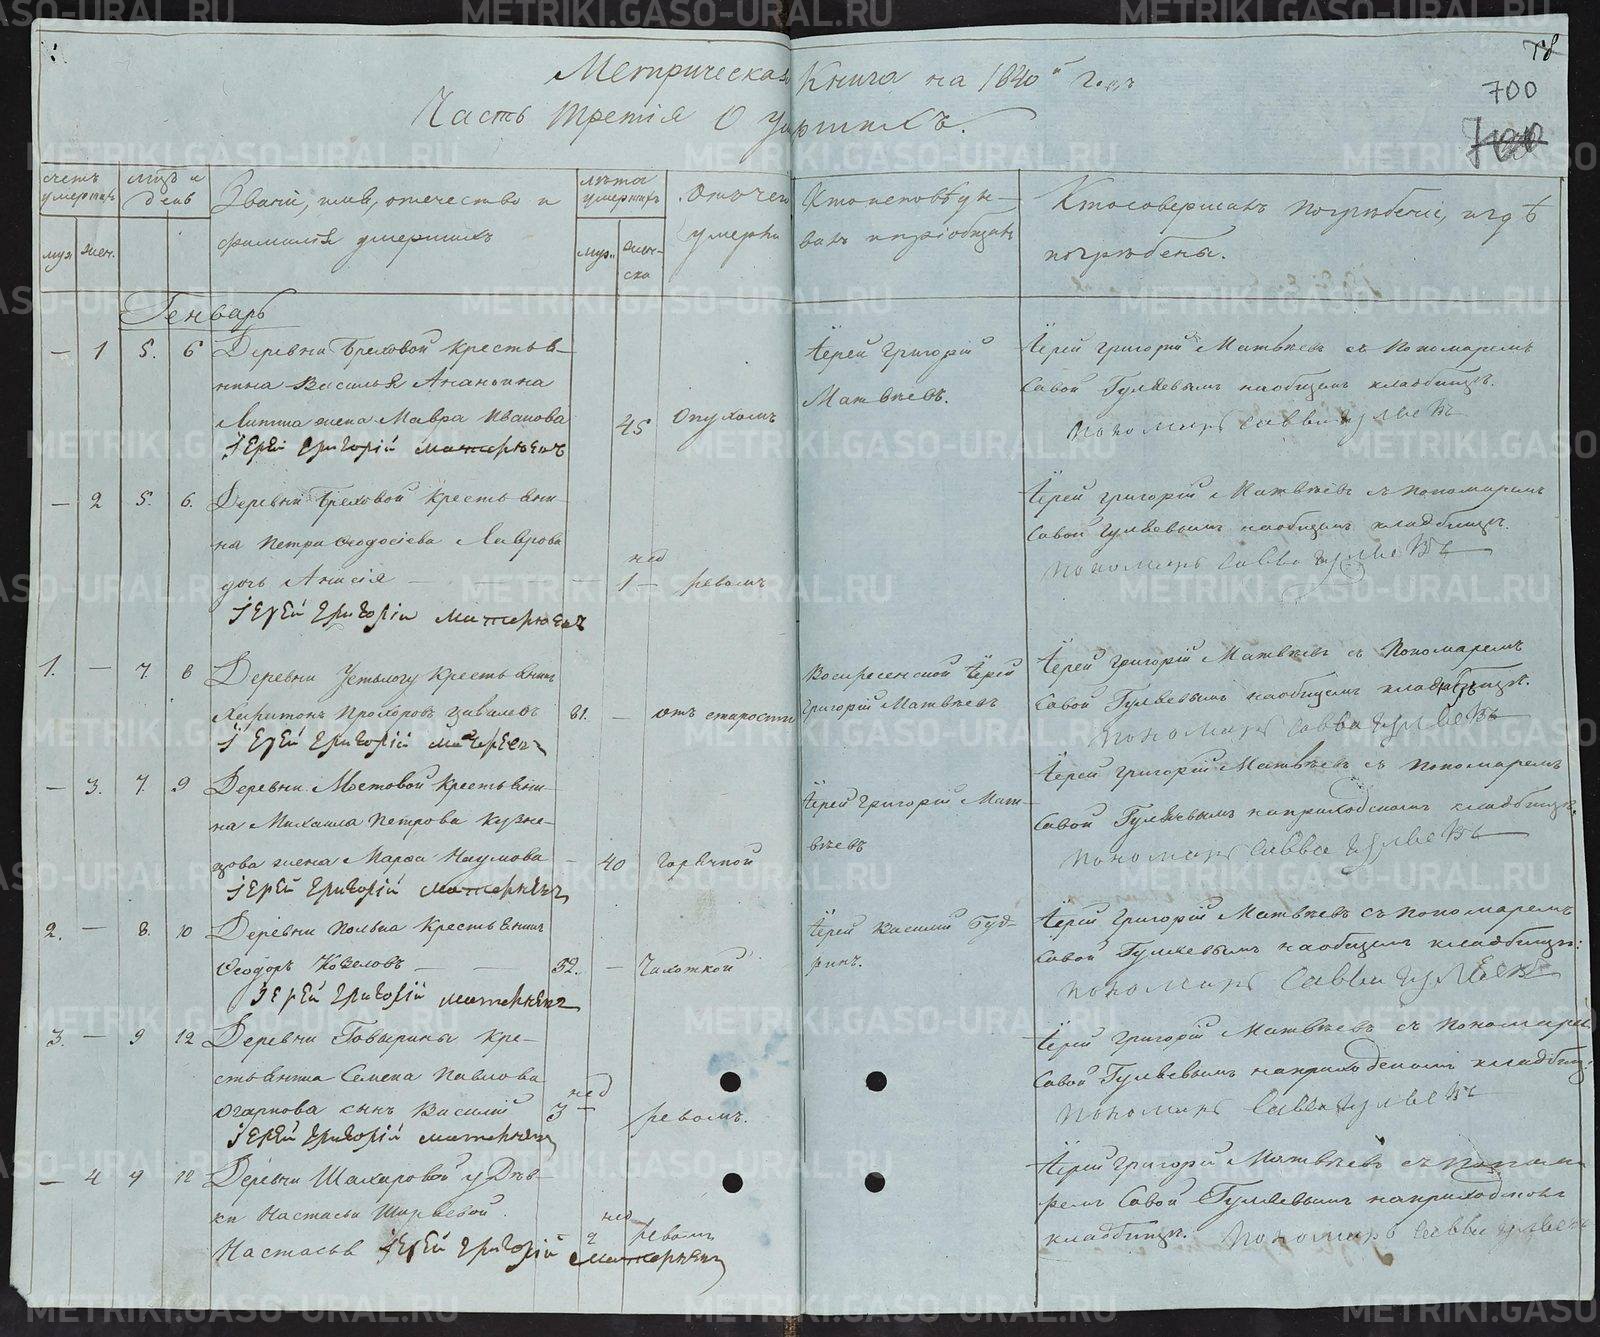 78
Метрическая Книга на 1840й Годъ
700
Часть третія О умершихъ.
700
счетъ умершихъ
мцъ и день
Званіе, имя, отечество и фамилія умершихъ
лѣта умершихъ
отъ чего умерли
Кто исповѣдывалъ и пріобщалъ
Кто совершалъ погребеніе, и гдѣ погребены.
муж. жен.
муж. женска
Генварь
— 1 5. 6 Деревни Бреховой крестья-
нина Василья Ананьина
жена Мавра Иванова 45 Опухолью
Іерей Григорій Матвѣевъ
Іерей Григорій
Матвѣевъ.
Іерей Григорій Матвѣевъ съ Пономаремъ
Савой Гуляевымъ на общемъ кладбищѣ.
пономарь Савва Гуляевъ
— 2 5. 6. Деревни Бреховой крестьяни-
на Петра Ѳеодосіева Лаврова
дочь Анисія — нед 1 — ревомъ
Іерей Григорій Матвѣевъ
Іерей Григорій Матвѣевъ съ пономаремъ
Савой Гуляевымъ на общемъ кладбищѣ.
пономарь Савва Гуляевъ
1. — 7. 8 Деревни Устьлогу крестьянинъ
Харитонъ Прохоровъ 81. — отъ старости
Іерей Григорій Матвѣевъ
Воскресенской Іерей
Григорій Матвѣевъ
Іерей Григорій Матвѣевъ съ Пономаремъ
Савой Гуляевымъ на общемъ кладбищѣ.
пономарь Савва Гуляевъ
— 3. 7. 9 Деревни Мостовой крестьяни-
на Михаила Петрова Кузне-
цова жена Марѳа Наумова — 40 Горячкой
Іерей Григорій Матвѣевъ
Іерей Григорій Мат-
вѣевъ
Іерей Григорій Матвѣевъ съ Пономаремъ
Савой Гуляевымъ на приходскомъ кладбищѣ.
пономарь Савва Гуляевъ
2. — 8. 10 Деревни крестьянинъ
Ѳеодоръ Козеловъ — — 52. — Чахоткой
Іерей Григорій Матвѣевъ
Іерей Василій Буд-
ринъ.
Іерей Григорій Матвѣевъ съ пономаремъ
Савой Гуляевымъ на общемъ кладбищѣ:
пономарь Савва Гуляевъ
3. — 9 12 Деревни Говырины кре-
стьянина Семена Павлова
Огаркова сынъ Василій нед 3 — ревомъ.
Іерей Григорій Матвѣевъ
Іерей Григорій Матвѣевъ съ Пономаре
Савой Гуляевымъ на приходскомъ кладбищ:
пономарь Савва Гуляевъ
— 4 9 12 Деревни Шахаровой у Дѣв-
ки Настасьи Ширяевой.
Настасья нед 2 ревомъ
Іерей Григорій Матвѣевъ
Іерей Григорій Матвѣевъ съ понама-
ремъ Савой Гуляевымъ на приходскомъ
кладбищѣ. Пономарь Савва Гуляевъ
METRIKI.GASO-URAL.RU